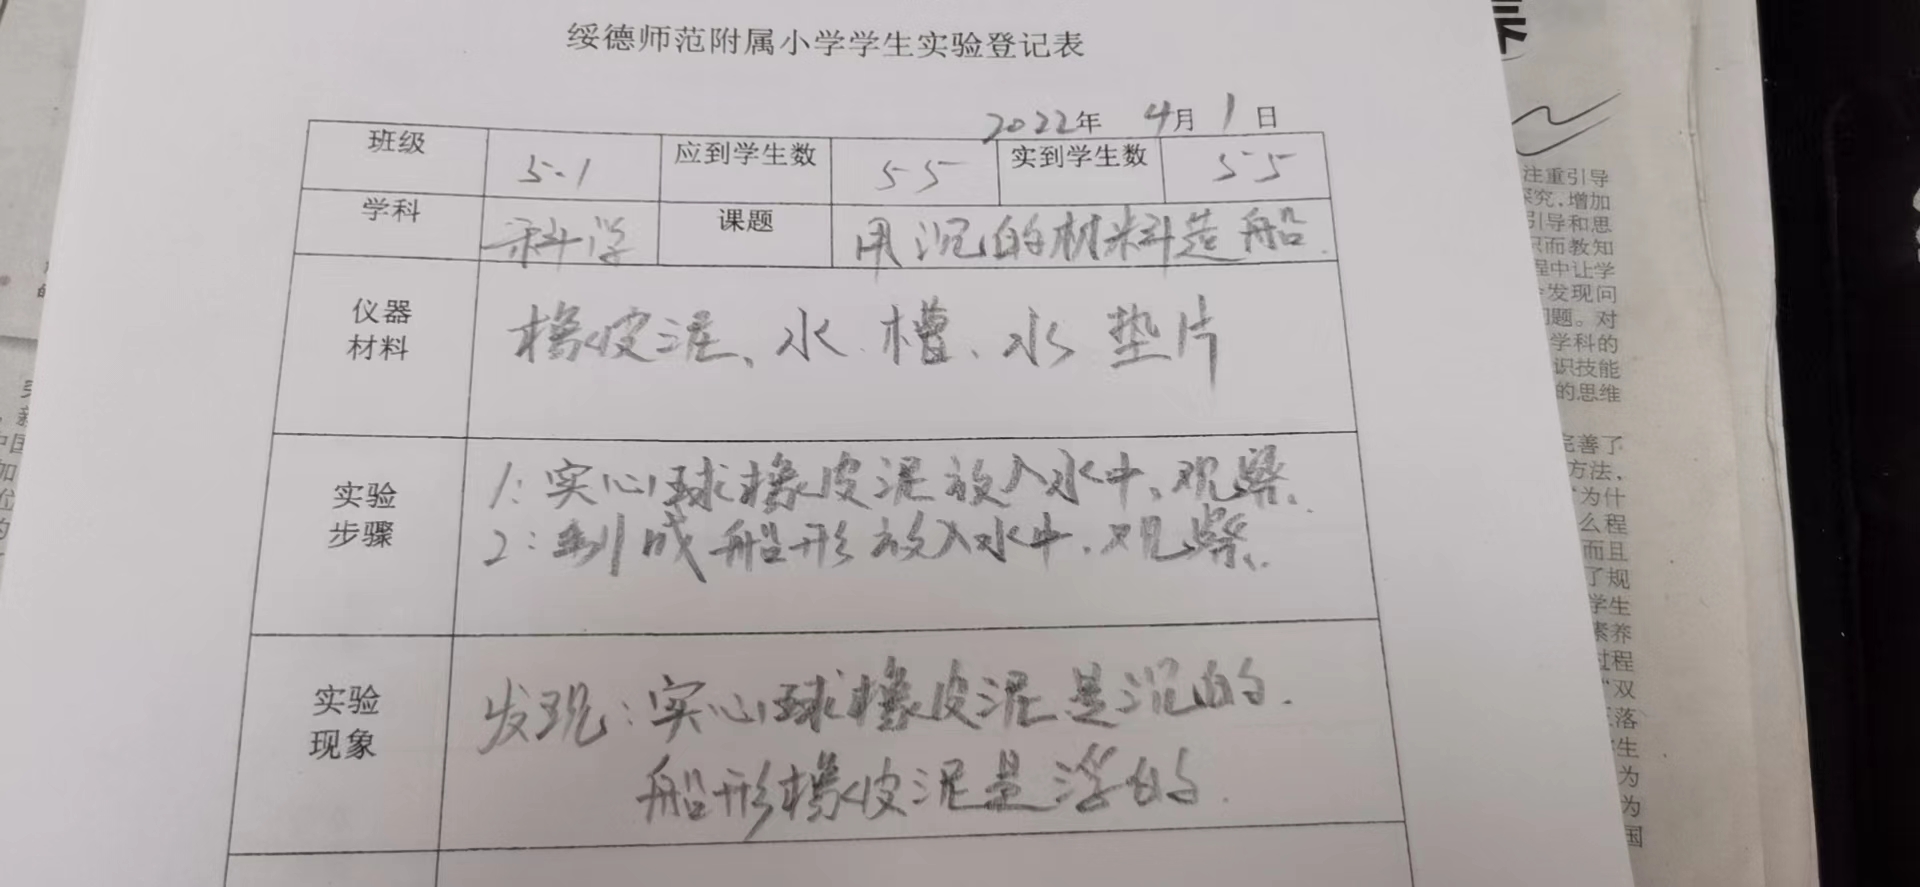 绥德师范附属小学学生实验登记表
2022年 4月 1日
班级 5.1 应到学生数 55 实到学生数 55
学科 科学 课题 用沉的材料造船.
仪器
材料
橡皮泥、水槽、水 垫片
实验
步骤
1: 实心球橡皮泥放入水中,观察.
2: 制成船形放入水中,观察.
实验
现象
发现: 实心球橡皮泥是沉的.
船形橡皮泥是浮的.
注重引导
探究,增加
引导和思
识而教知
程中让学
发现问
问题。对
学科的
识技能
的思维
完善了
方法,
“为什
么程
而且
了规
学生
素养
过程
“双
落
生
为
为
国